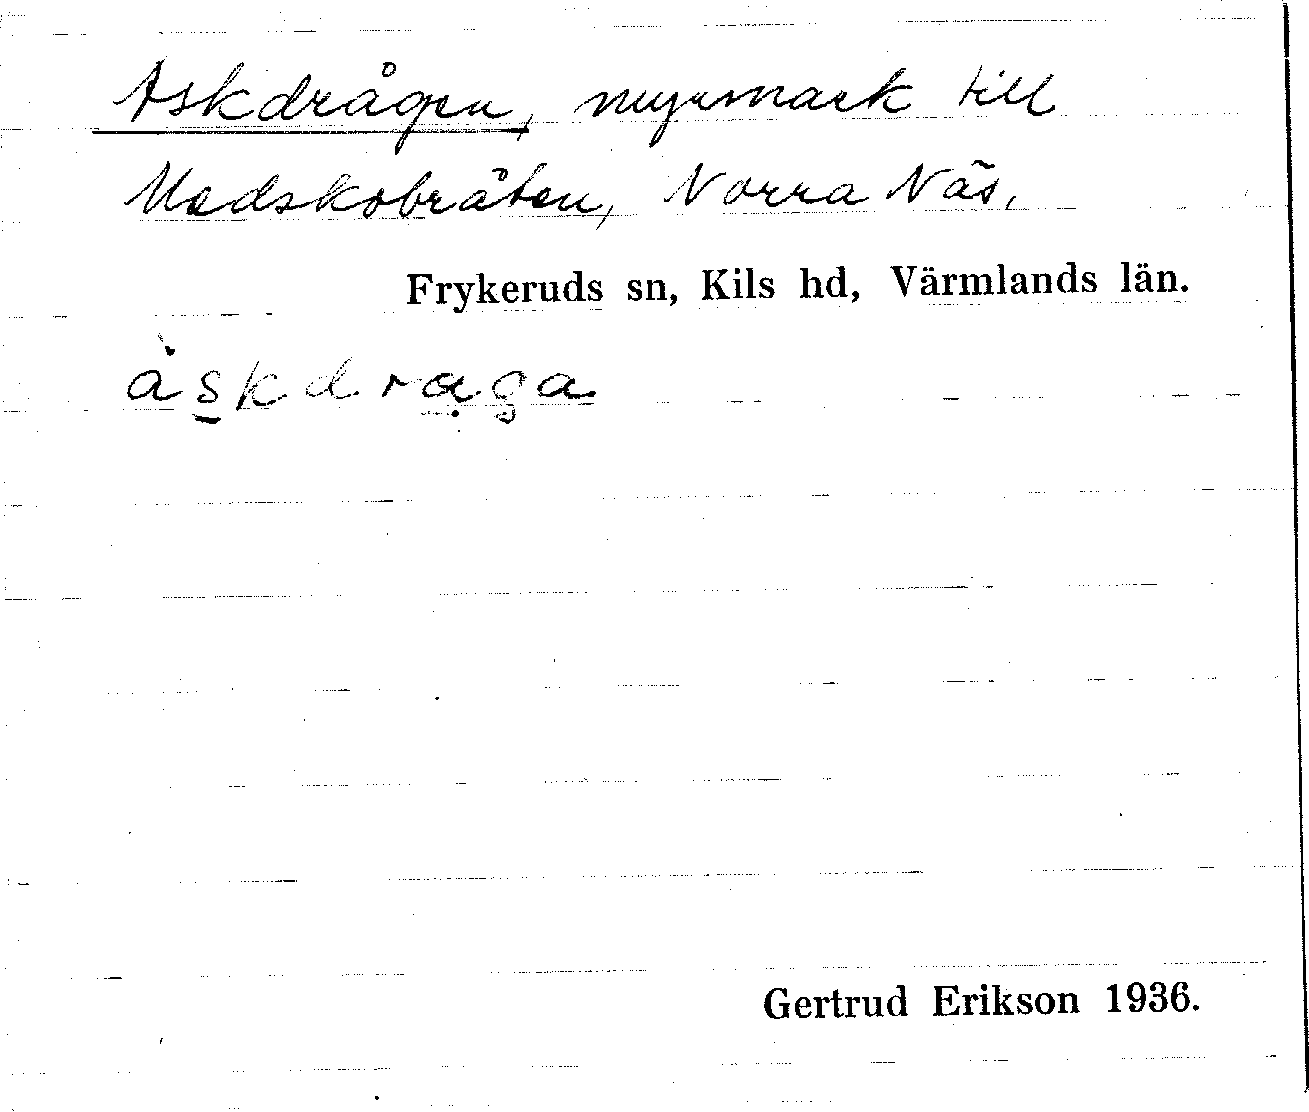 Askdrågen, myrmark till
Medskobråten, Norra Näs,
Frykeruds sn, Kils hd, Värmlands län.
àskdrạga
Gertrud Erikson 1936.